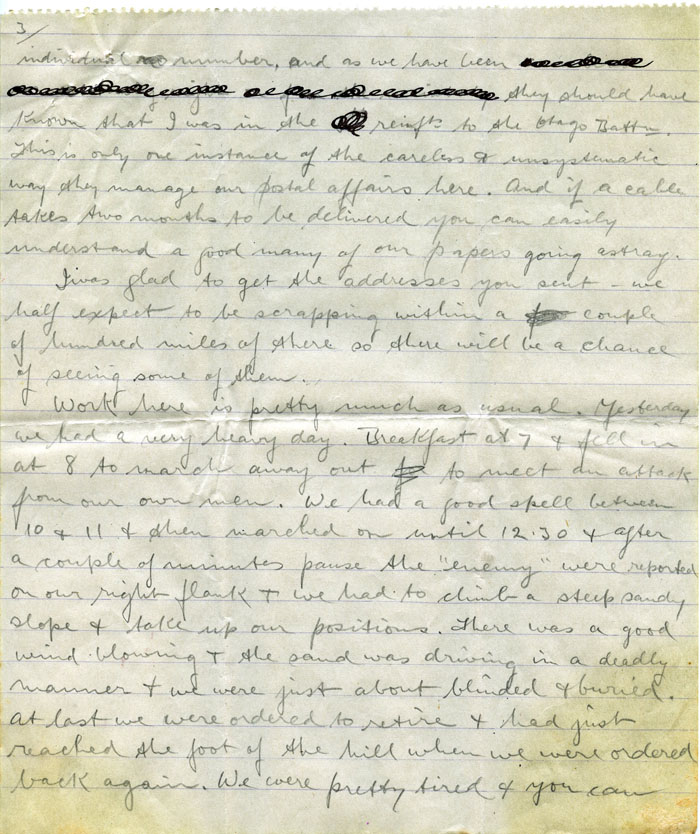 3/
individual number, and as we have been
they should have
known that I was in the reinfts to the Otago Battn.
This is only one instance of the careless & unsystematic
way they manage our postal affairs here. And if a cable
takes two months to be delivered you can easily
understand a good many of our papers going astray.
I was glad to get the addresses you sent - we
half expect to be scrapping within a couple
of hundred miles of there so there will be a chance
of seeing some of them.
Work here is pretty much as usual. Yesterday
we had a very heavy day. Breakfast at 7 & fell in
at 8 to march away out to meet an attack
from our own men. We had a good spell between
10 & 11 & then marched on until 12.30 & after
a couple of minutes pause the "enemy" were reported
on our right flank & we had to climb a steep sandy
slope & take up our positions. There was a good
wind blowing & the sand was driving in a deadly
manner & we were just about blinded & buried.
At last we were ordered to retire & had just
reached the foot of the hill when we were ordered
back again. We were pretty tired & you can